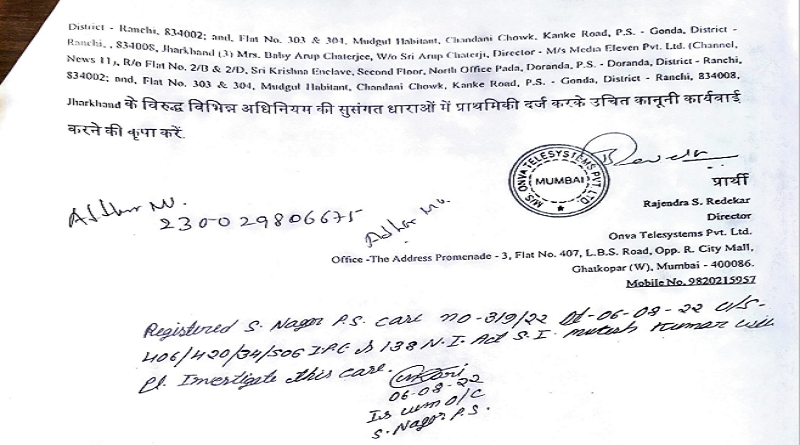 District - Ranchi, 834002; and, Flat No. 303 & 304, Mudgul Habitant, Chandani Chowk, Kanke Road, P.S. - Gonda, District -
Ranchi, , 834008, Jharkhand (3) Mrs. Baby Arup Chaterjee, W/o Sri Arup Chaterji, Director - M/s Media Eleven Pvt. Ltd. (Channel,
News 11), R/o Flat No. 2/B & 2/D, Sri Krishna Enclave, Second Floor, North Office Pada, Doranda, P.S. - Doranda, District - Ranchi,
834002; and, Flat No. 303 & 304, Mudgul Habitant, Chandani Chowk, Kanke Road, P.S. - Gonda, District - Ranchi, 834008,
Jharkhand के विरुद्ध विभिन्न अधिनियम की सुसंगत धाराओं में प्राथमिकी दर्ज करके उचित कानूनी कार्यवाई
करने की कृपा करें.
M/S. ONVA TELESYSTEMS PVT. LTD.
MUMBAI
प्रार्थी
Rajendra S. Redekar
Director
Onva Telesystems Pvt. Ltd.
Office -The Address Promenade - 3, Flat No. 407, L.B.S. Road, Opp. R. City Mall,
Ghatkopar (W), Mumbai - 400086.
Mobile No. 9820215957
Adhar No.
230029806675
Adhar No.
Registered S. Nagar P.S. case no-319/22 dt-06-08-22 u/s-
406/420/34/506 I.P.C & 138 N.I. Act S.I. Mukesh Kumar will
Pl. Investigate this case.
06-08-22
O/C
S. Nagar P.S.